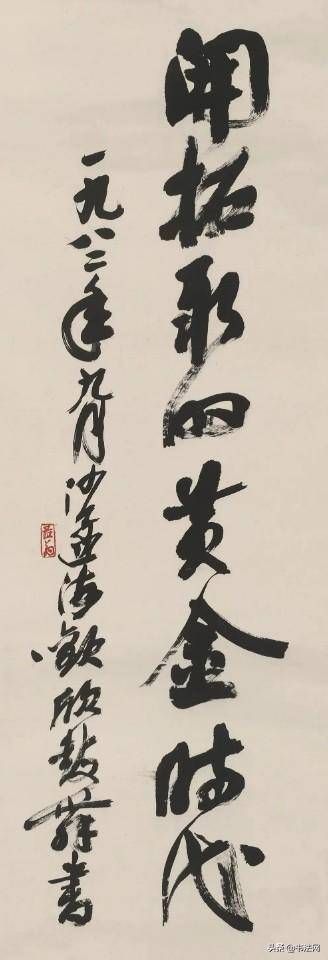 開拓新的黄金時代
一九八二年九月沙孟海歡欣鼓舞書
头条@书法网